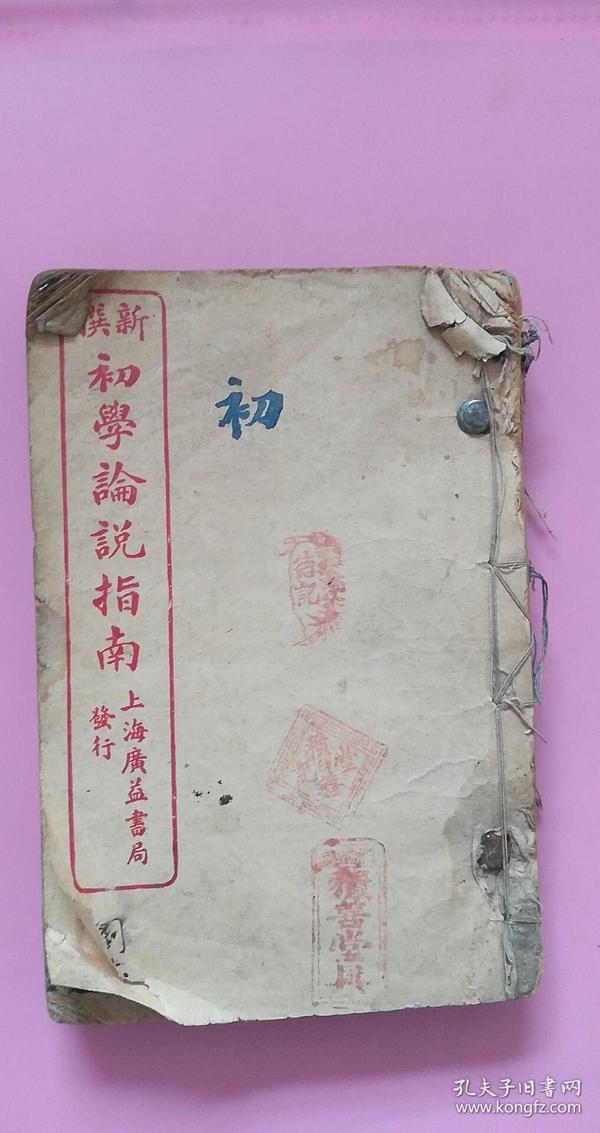 新撰
初學論説指南
上海廣益書局
發行
初
積善堂
孔夫子旧书网
www.kongfz.com